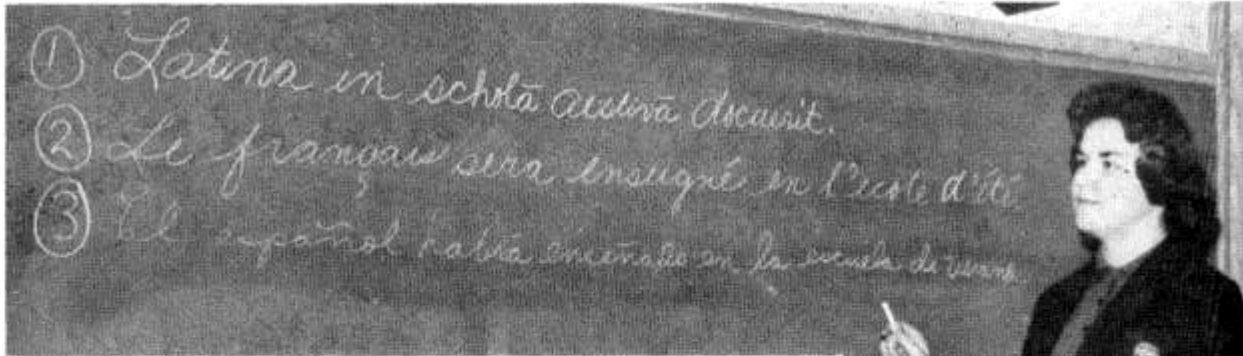 ① Latina in scholā aestivā docuerit.
② Le français sera enseigné en l'école d'été
③ El español habrá enseñado en la escuela de verano.